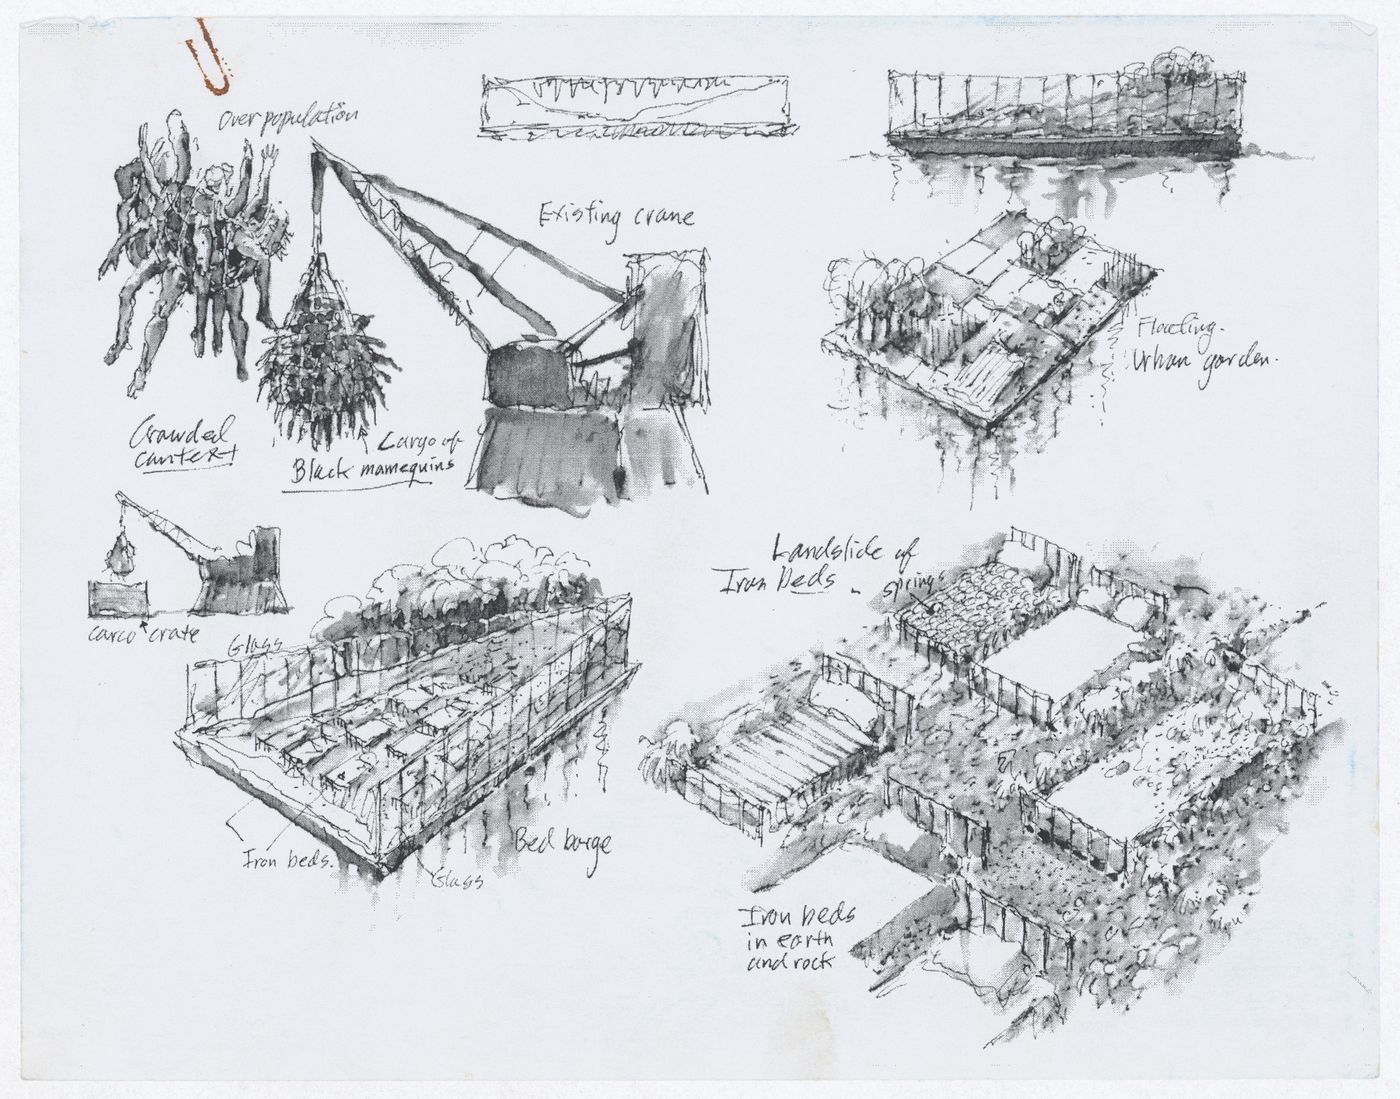 Overpopulation
Existing crane
Floating.
Urban garden.
Crowded
cantext
Cargo of
Black mamequins
Landslide of
Iron beds.
springs
carco crate
Glass
Bed barge
Iron beds.
Glass
Iron beds
in earth
and rock